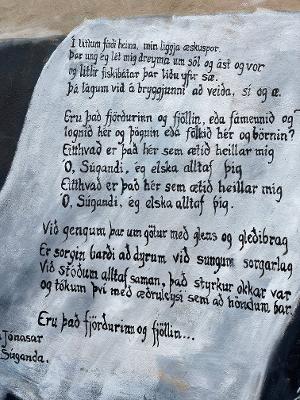 Í litlum firði heima, mín liggja æskuspor.
Þar ung ég lét mig dreyma um sól og ást og vor
og litlir fiskibátar þar liðu yfir sæ.
Þá lágum við á bryggjunni að veiða, sí og æ.
Eru það fjörðurinn og fjöllin, eða fámennið og
lognið hér og þögnin eða fólkið hér og börnin?
Eitthvað er það hér sem ætíð heillar mig
Ó, Súgandi, ég elska alltaf þig
Eitthvað er það hér sem ætíð heillar mig
Ó, Súgandi, ég elska alltaf þig.
Við gengum þar um götur með glens og gleðibrag
Er sorgin barði að dyrum við sungum sorgarlag
Við stöðum alltaf saman, það styrkur okkar var
og tókum því með æðruleysi sem að höndum bar.
Eru það fjörðurinn og fjöllin...
Jónasar
Súganda.